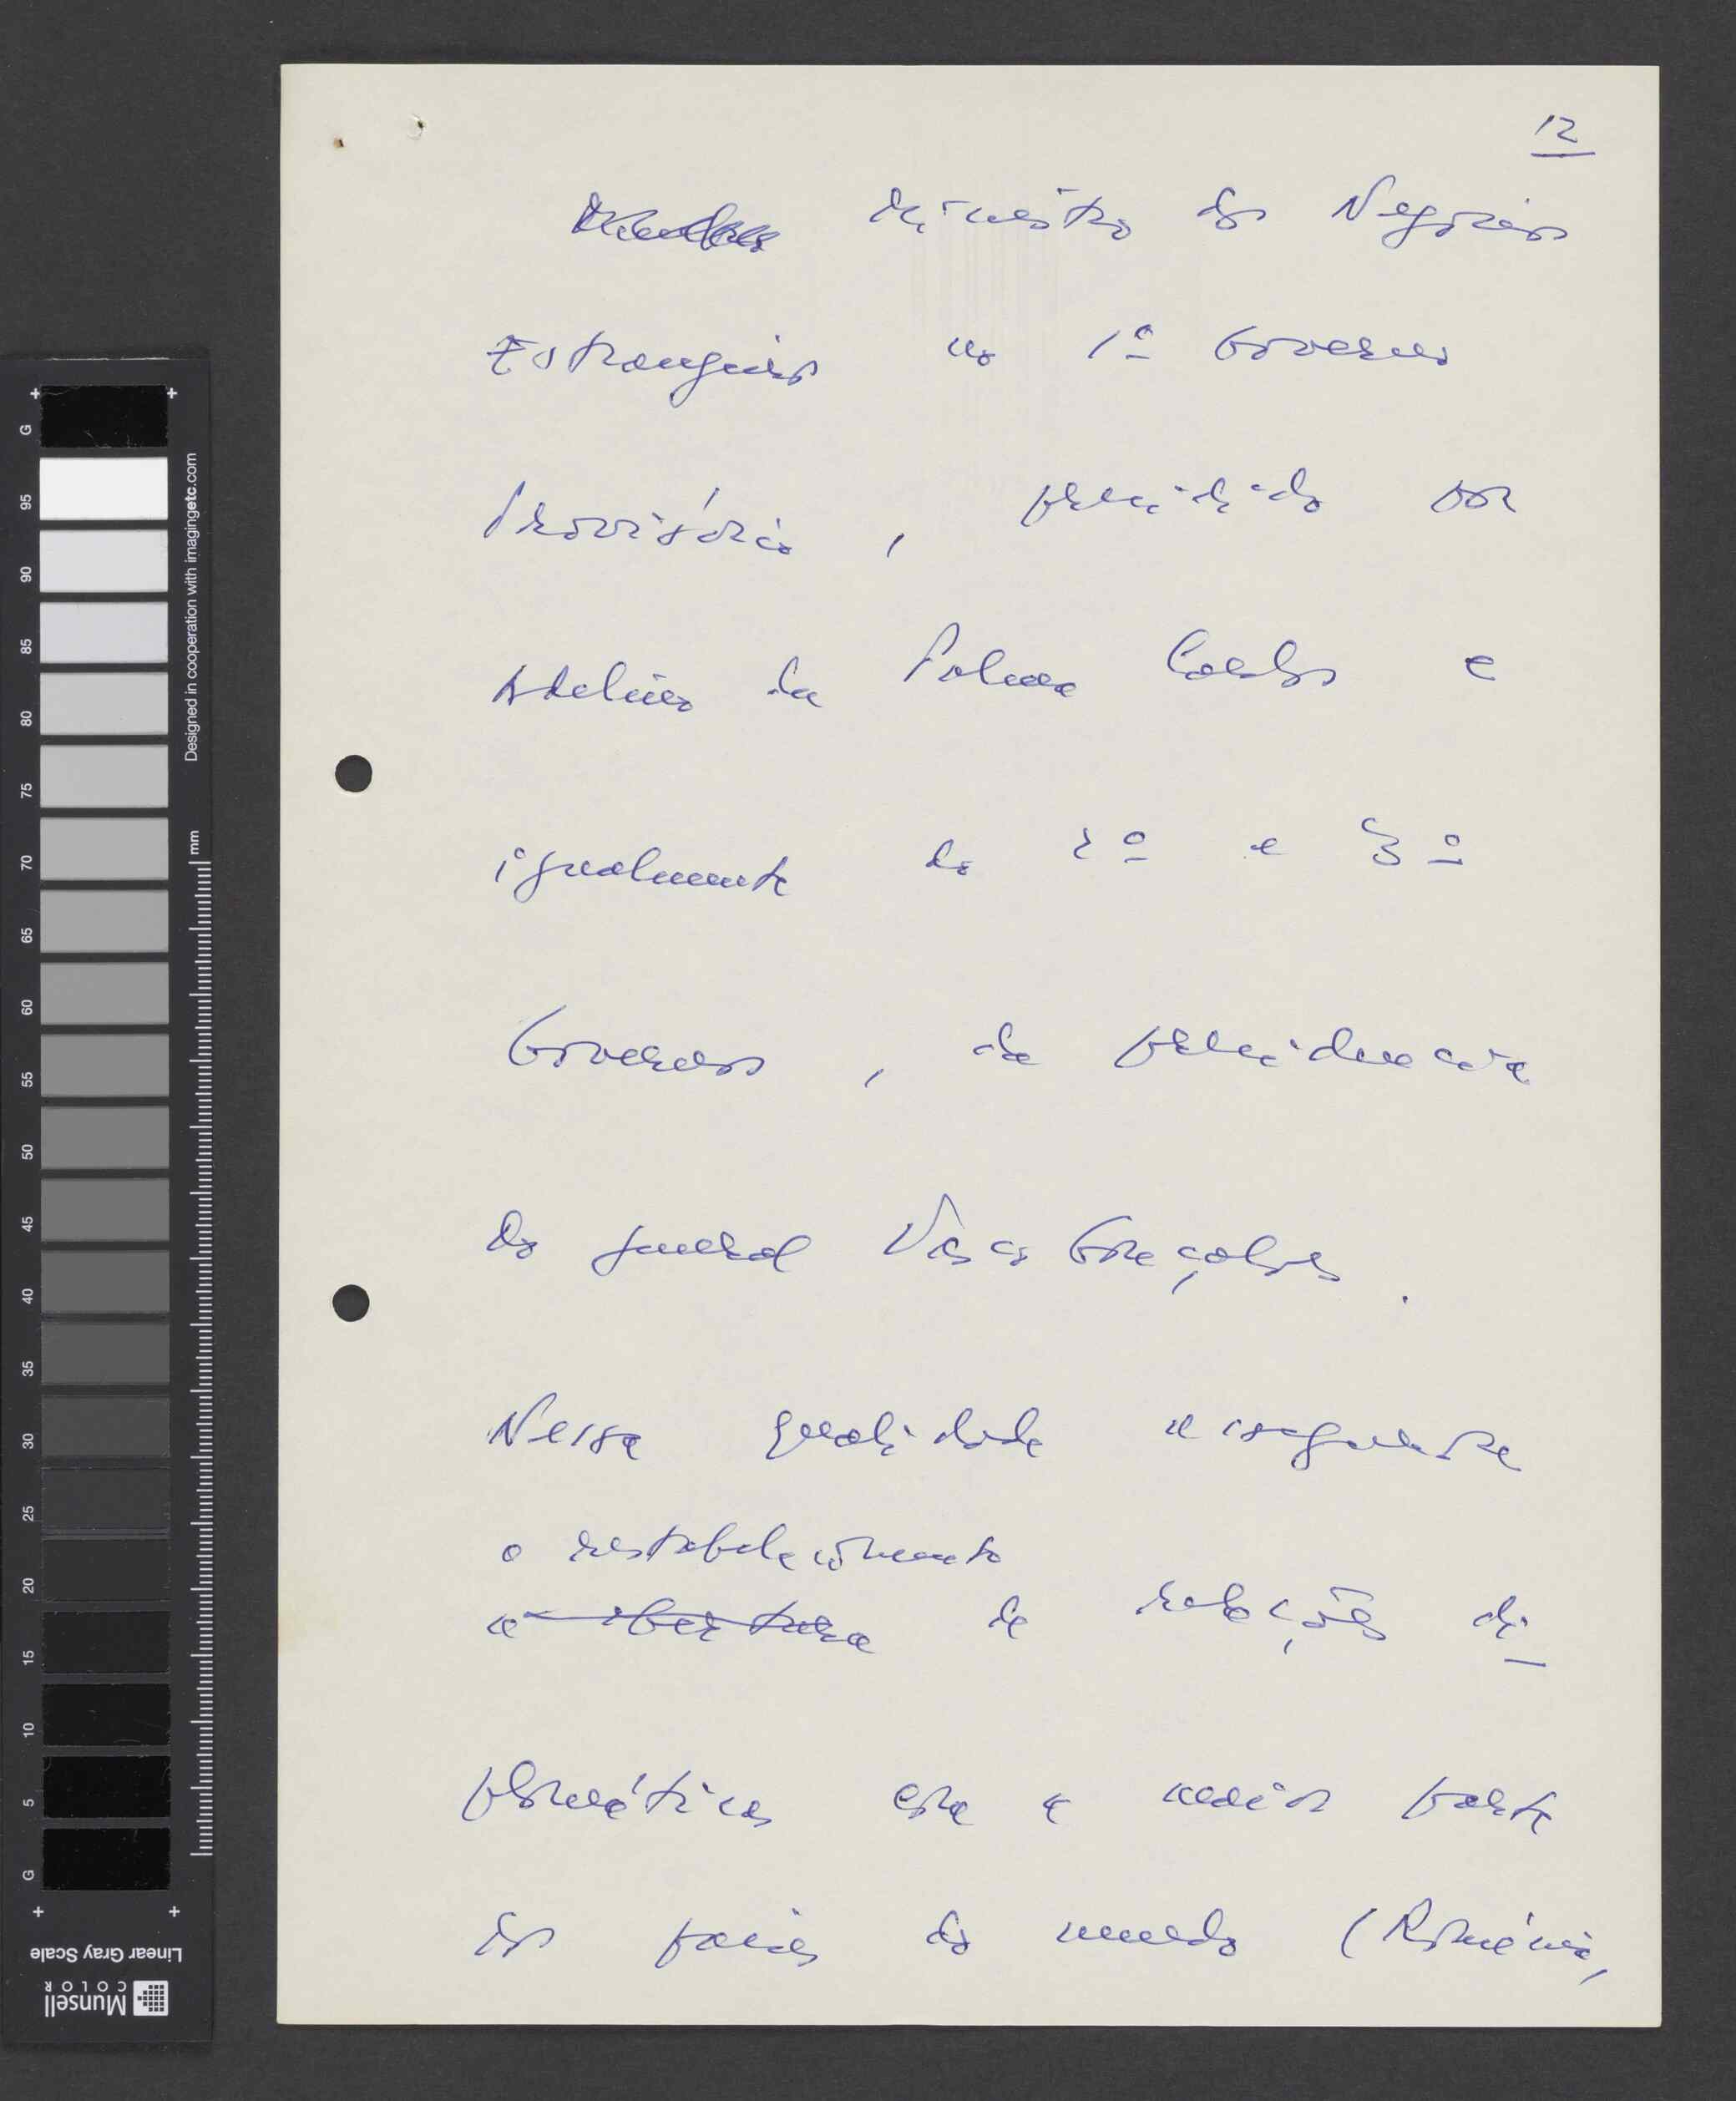 12
Ministro dos Negócios
Estrangeiros no 1º Governo
Provisório, presidido por
Adelino da Palma Carlos e
igualmente do 2º e 3º
Governos, da presidência
do general Vasco Gonçalves.
Nessa qualidade negoceia
o restabelecimento
a abertura de relações di-
plomáticas com a maior parte
dos países do mundo (Roménia,
G 95 90 85 80 75 70 65 60 55 50 45 40 35 30 25 20 15 10 5 G
Designed in cooperation with imagingetc.com
mm
Linear Gray Scale
Munsell
COLOR